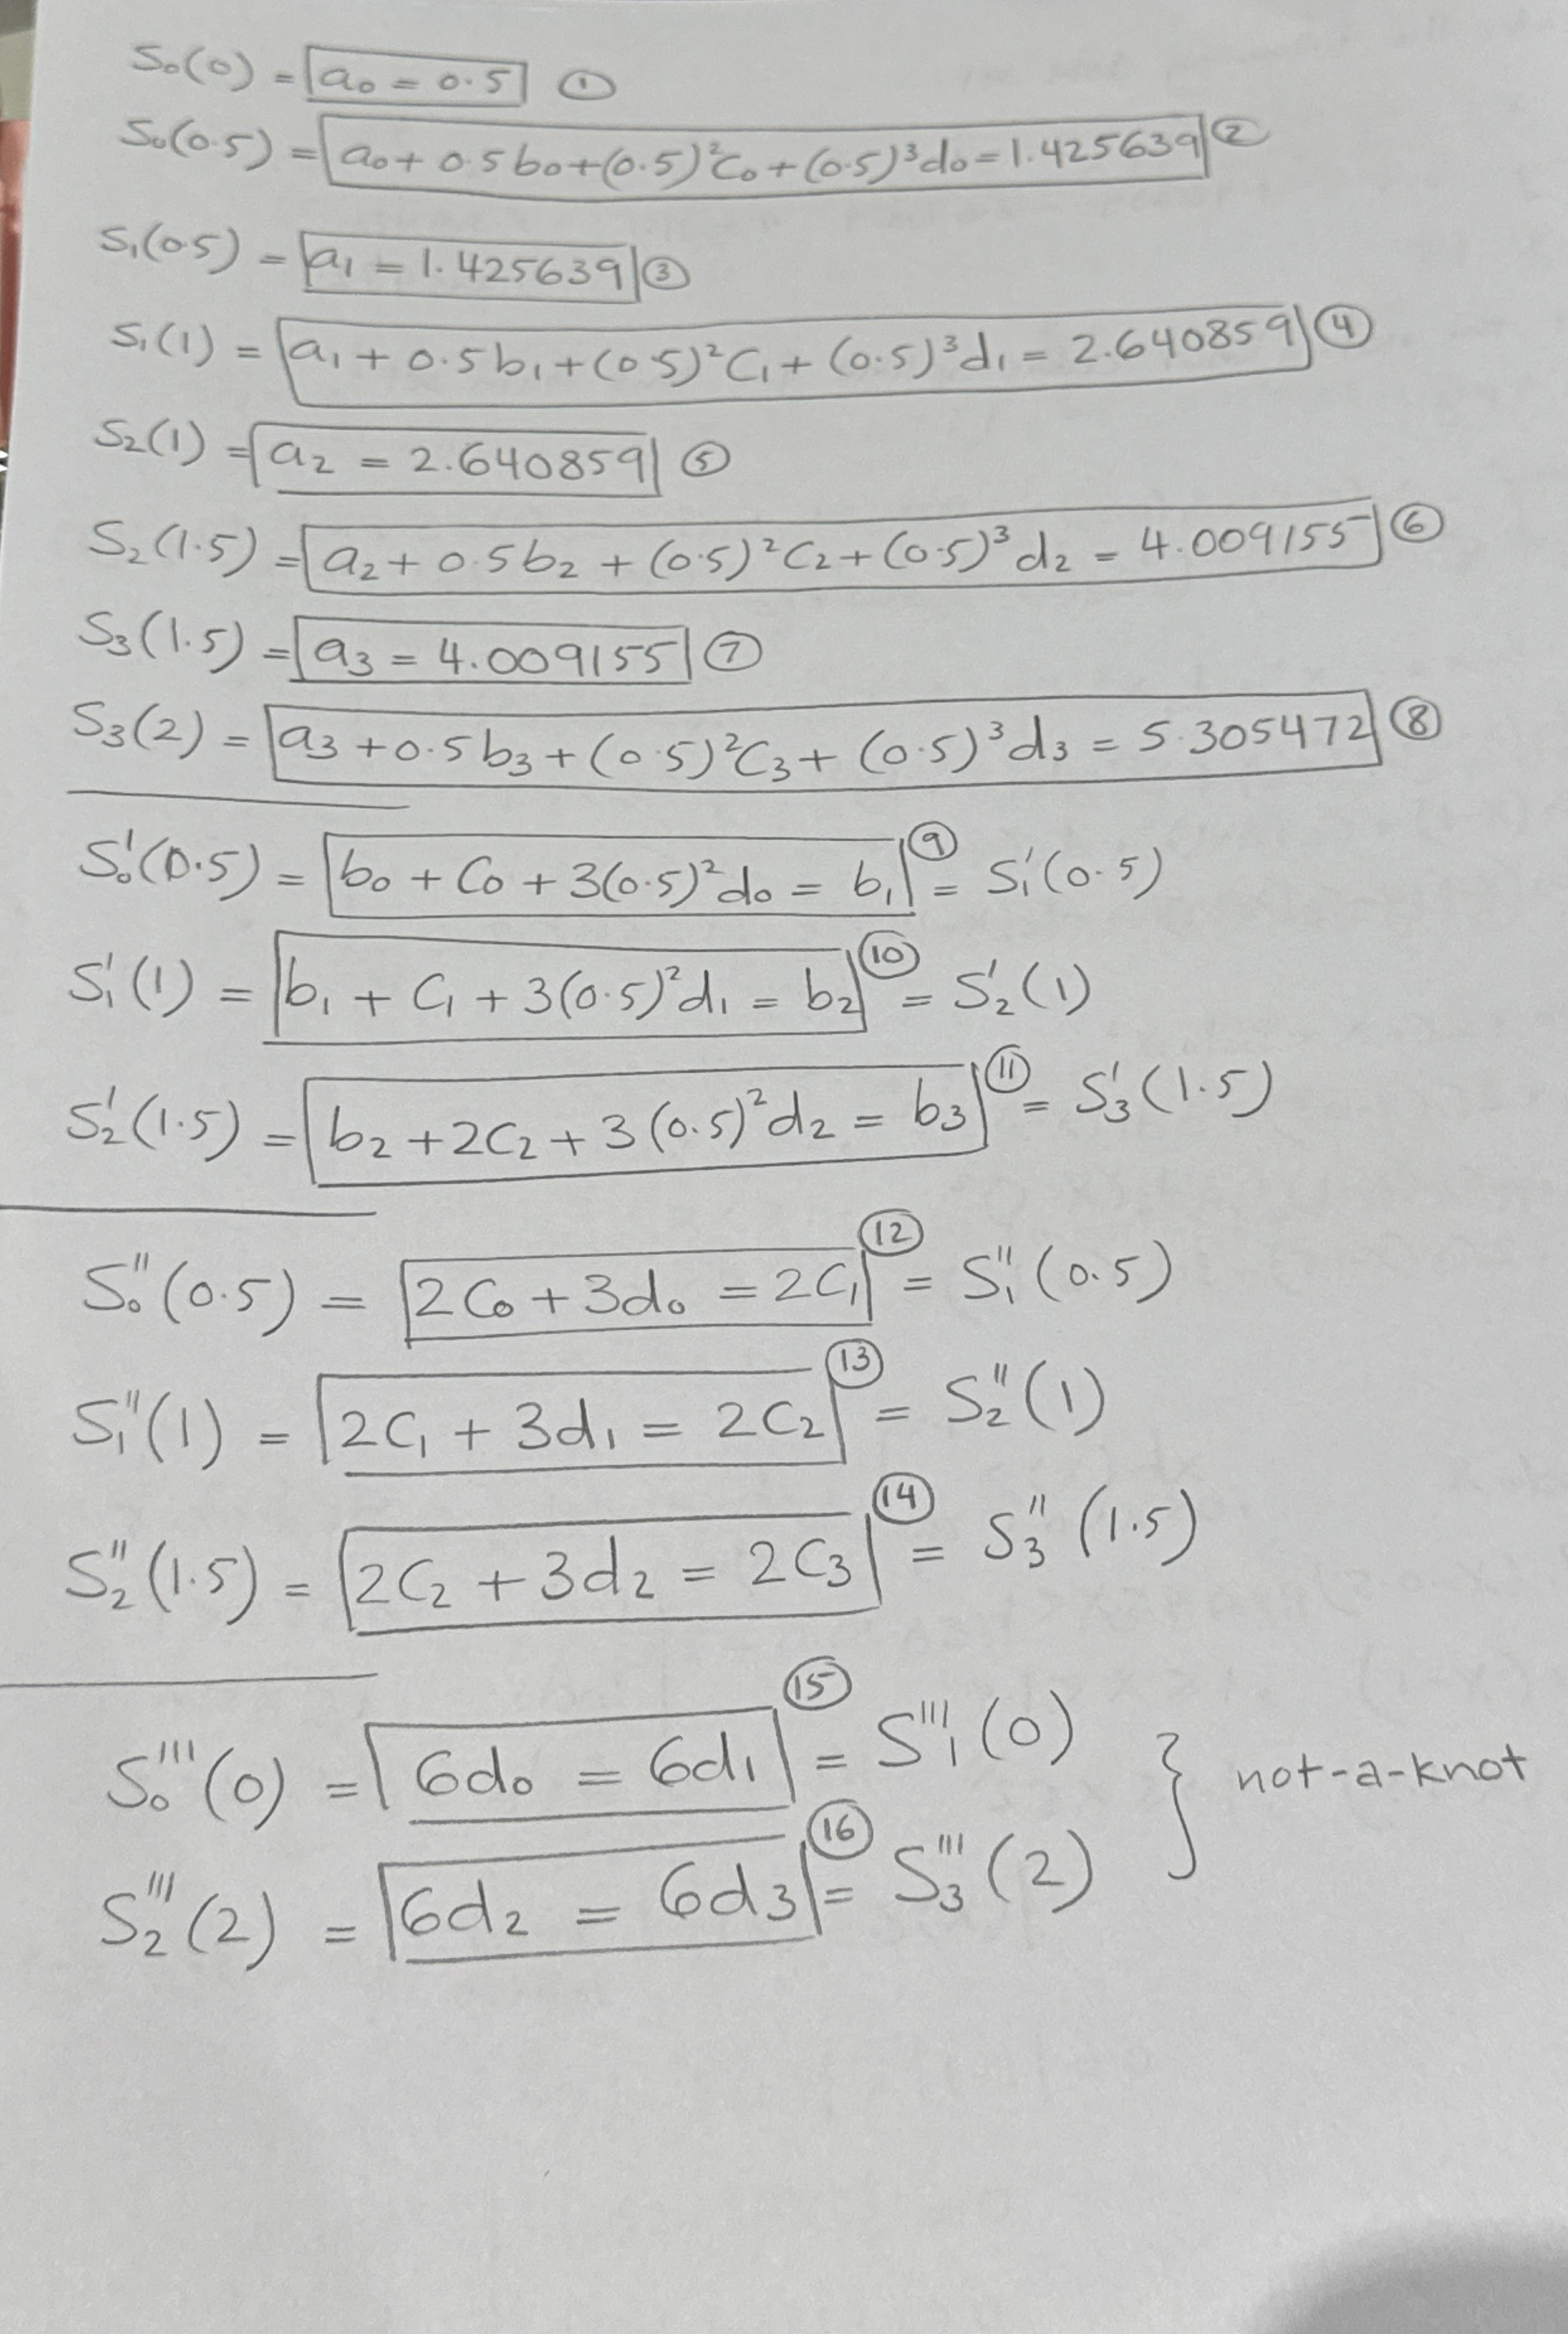 S₀(0) = a₀ = 0.5 ①
S₀(0.5) = a₀ + 0.5b₀ + (0.5)²C₀ + (0.5)³d₀ = 1.425639 ②
S₁(0.5) = a₁ = 1.425639 ③
S₁(1) = a₁ + 0.5b₁ + (0.5)²C₁ + (0.5)³d₁ = 2.640859 ④
S₂(1) = a₂ = 2.640859 ⑤
S₂(1.5) = a₂ + 0.5b₂ + (0.5)²C₂ + (0.5)³d₂ = 4.009155 ⑥
S₃(1.5) = a₃ = 4.009155 ⑦
S₃(2) = a₃ + 0.5b₃ + (0.5)²C₃ + (0.5)³d₃ = 5.305472 ⑧
S₀'(0.5) = b₀ + C₀ + 3(0.5)²d₀ = b₁ ⑨ = S₁'(0.5)
S₁'(1) = b₁ + C₁ + 3(0.5)²d₁ = b₂ ⑩ = S₂'(1)
S₂'(1.5) = b₂ + 2C₂ + 3(0.5)²d₂ = b₃ ⑪ = S₃'(1.5)
S₀''(0.5) = 2C₀ + 3d₀ = 2C₁ ⑫ = S₁''(0.5)
S₁''(1) = 2C₁ + 3d₁ = 2C₂ ⑬ = S₂''(1)
S₂''(1.5) = 2C₂ + 3d₂ = 2C₃ ⑭ = S₃''(1.5)
S₀'''(0) = 6d₀ = 6d₁ ⑮ = S₁'''(0)
S₂'''(2) = 6d₂ = 6d₃ ⑯ = S₃'''(2)
} not-a-knot